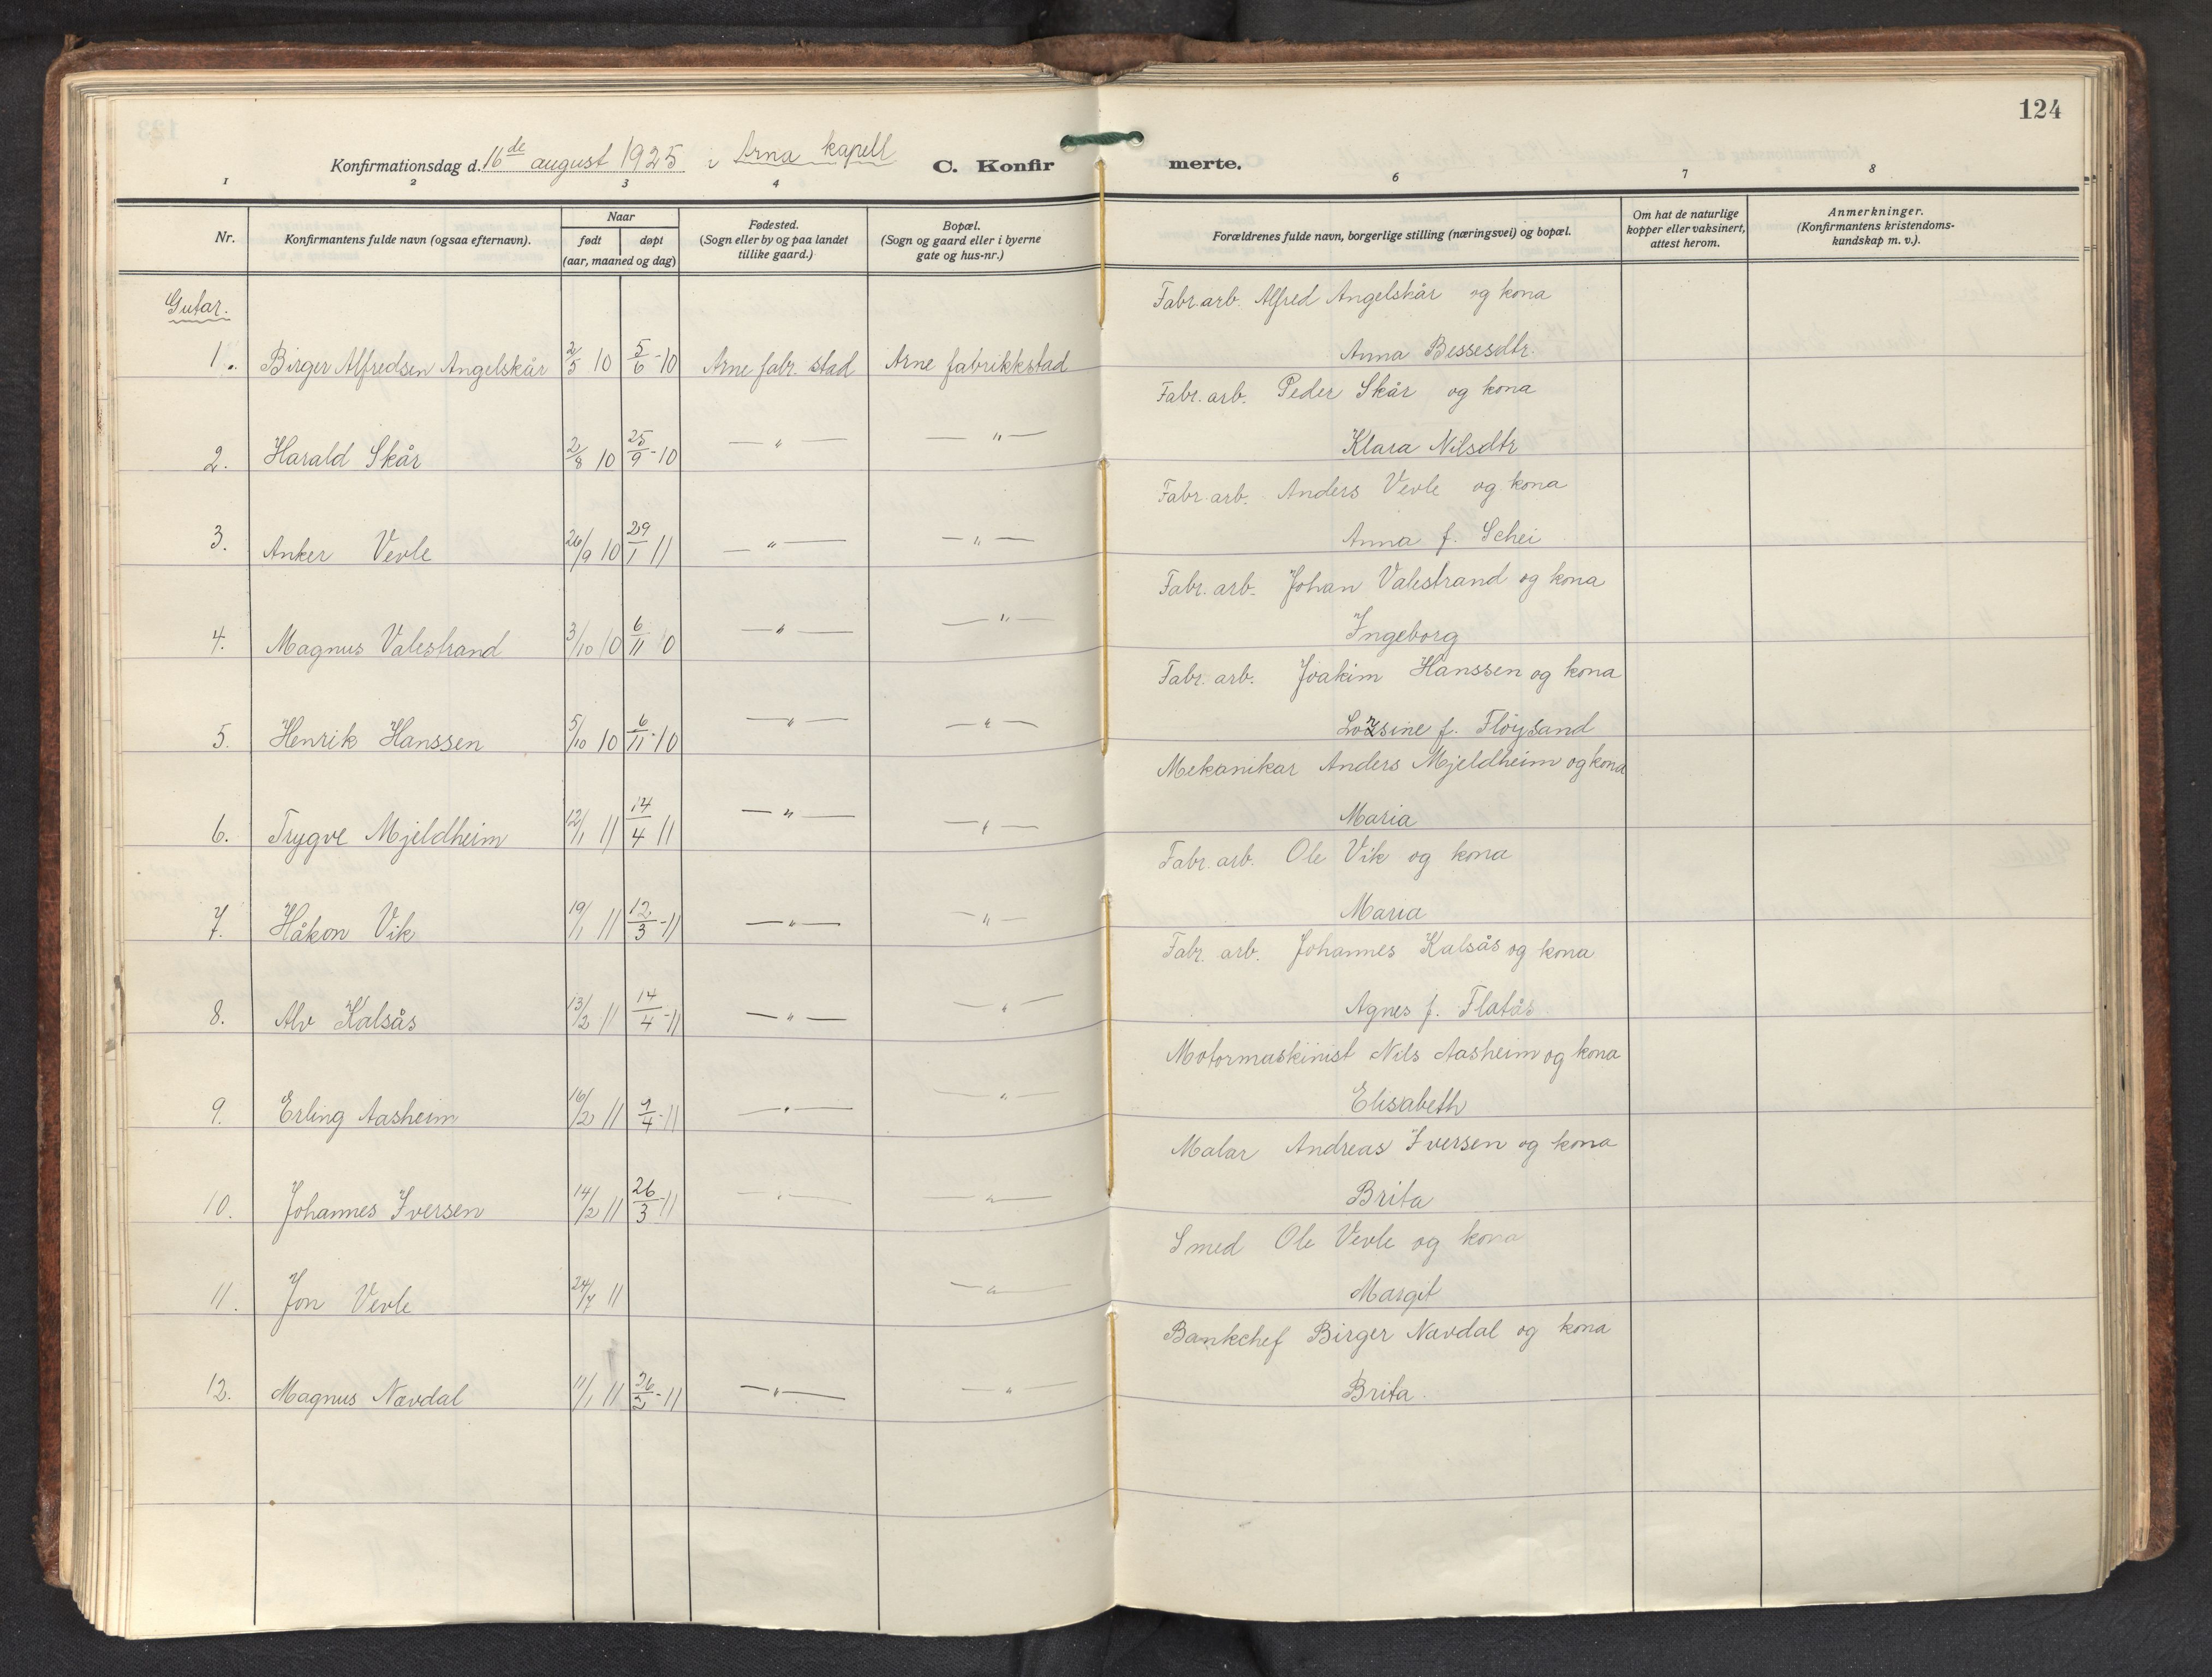 124
Konfirmationsdag d. 16de august 1925 i Arna kapell
C. Konfirmerte.
1 2 3 4 6 7 8
Nr.
Konfirmantens fulde navn (ogsaa efternavn).
Naar
født døpt
(aar, maaned og dag)
Fødested.
(Sogn eller by og paa landet
tillike gaard.)
Bopæl.
(Sogn og gaard eller i byerne
gate og hus-nr.)
Forældrenes fulde navn, borgerlige stilling (næringsvei) og bopæl.
Om hat de naturlige
kopper eller vaksinert,
attest herom.
Anmerkninger.
(Konfirmantens kristendoms-
kundskap m. v.).
Gutar.
Fabr. arb. Alfred Angelskår og kona
1. Birger Alfredsen Angelskår 2/5 10 5/6-10 Arne fabr. stad Arne fabrikkstad Anna Bessesdtr.
Fabr. arb. Peder Skår og kona
2. Harald Skår 2/8 10 25/9-10 — " — — " — Klara Nilsdtr
Fabr. arb. Anders Vevle og kona
3. Anker Vevle 26/9 10 29/1 11 — " — — " — Anna f. Schei
Fabr. arb. Johan Valestrand og kona
4. Magnus Valestrand 3/10 10 6/11 10 — " — — " — Ingeborg
Fabr. arb. Joakim Hanssen og kona
5. Henrik Hanssen 5/10 10 6/11-10 — " — — " — f. Fløysand
Mekanikar Anders Mjeldheim og kona
6. Trygve Mjeldheim 12/1 11 14/4 11 — " — — " — Maria
Fabr. arb. Ole Vik og kona
7. Håkon Vik 19/1 11 12/3-11 — " — — " — Maria
Fabr. arb. Johannes Kalsås og kona
8. Alv Kalsås 13/2 11 14/4-11 — " — — " — Agnes f. Flatås
Motormaskinist Nils Aasheim og kona
9. Erling Aasheim 16/2 11 9/4-11 — " — — " — Elisabeth
Malar Andreas Iversen og kona
10. Johannes Iversen 14/2 11 26/3-11 — " — — " — Brita
Smed Ole Vevle og kona
11. Jon Vevle 24/7 11 — " — Margit
Bankchef Birger Nævdal og kona
12. Magnus Nævdal 11/1 11 26/2-11 — " — — " — Brita.